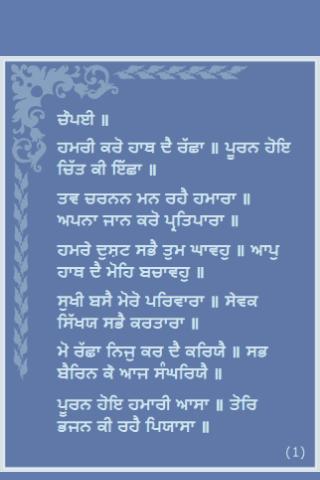 ਚੌਪਈ ॥
ਹਮਰੀ ਕਰੋ ਹਾਥ ਦੈ ਰੱਛਾ ॥ ਪੂਰਨ ਹੋਇ
ਚਿੱਤ ਕੀ ਇੱਛਾ ॥
ਤਵ ਚਰਨਨ ਮਨ ਰਹੈ ਹਮਾਰਾ ॥
ਅਪਨਾ ਜਾਨ ਕਰੋ ਪ੍ਰਤਿਪਾਰਾ ॥
ਹਮਰੇ ਦੁਸ਼ਟ ਸਭੈ ਤੁਮ ਘਾਵਹੁ ॥ ਆਪੁ
ਹਾਥ ਦੈ ਮੋਹਿ ਬਚਾਵਹੁ ॥
ਸੁਖੀ ਬਸੈ ਮੋਰੋ ਪਰਿਵਾਰਾ ॥ ਸੇਵਕ
ਸਿੱਖਯ ਸਭੈ ਕਰਤਾਰਾ ॥
ਮੋ ਰੱਛਾ ਨਿਜੁ ਕਰ ਦੈ ਕਰਿਯੈ ॥ ਸਭ
ਬੈਰਿਨ ਕੌ ਆਜ ਸੰਘਰਿਯੈ ॥
ਪੂਰਨ ਹੋਇ ਹਮਾਰੀ ਆਸਾ ॥ ਤੋਰਿ
ਭਜਨ ਕੀ ਰਹੈ ਪਿਯਾਸਾ ॥
(1)